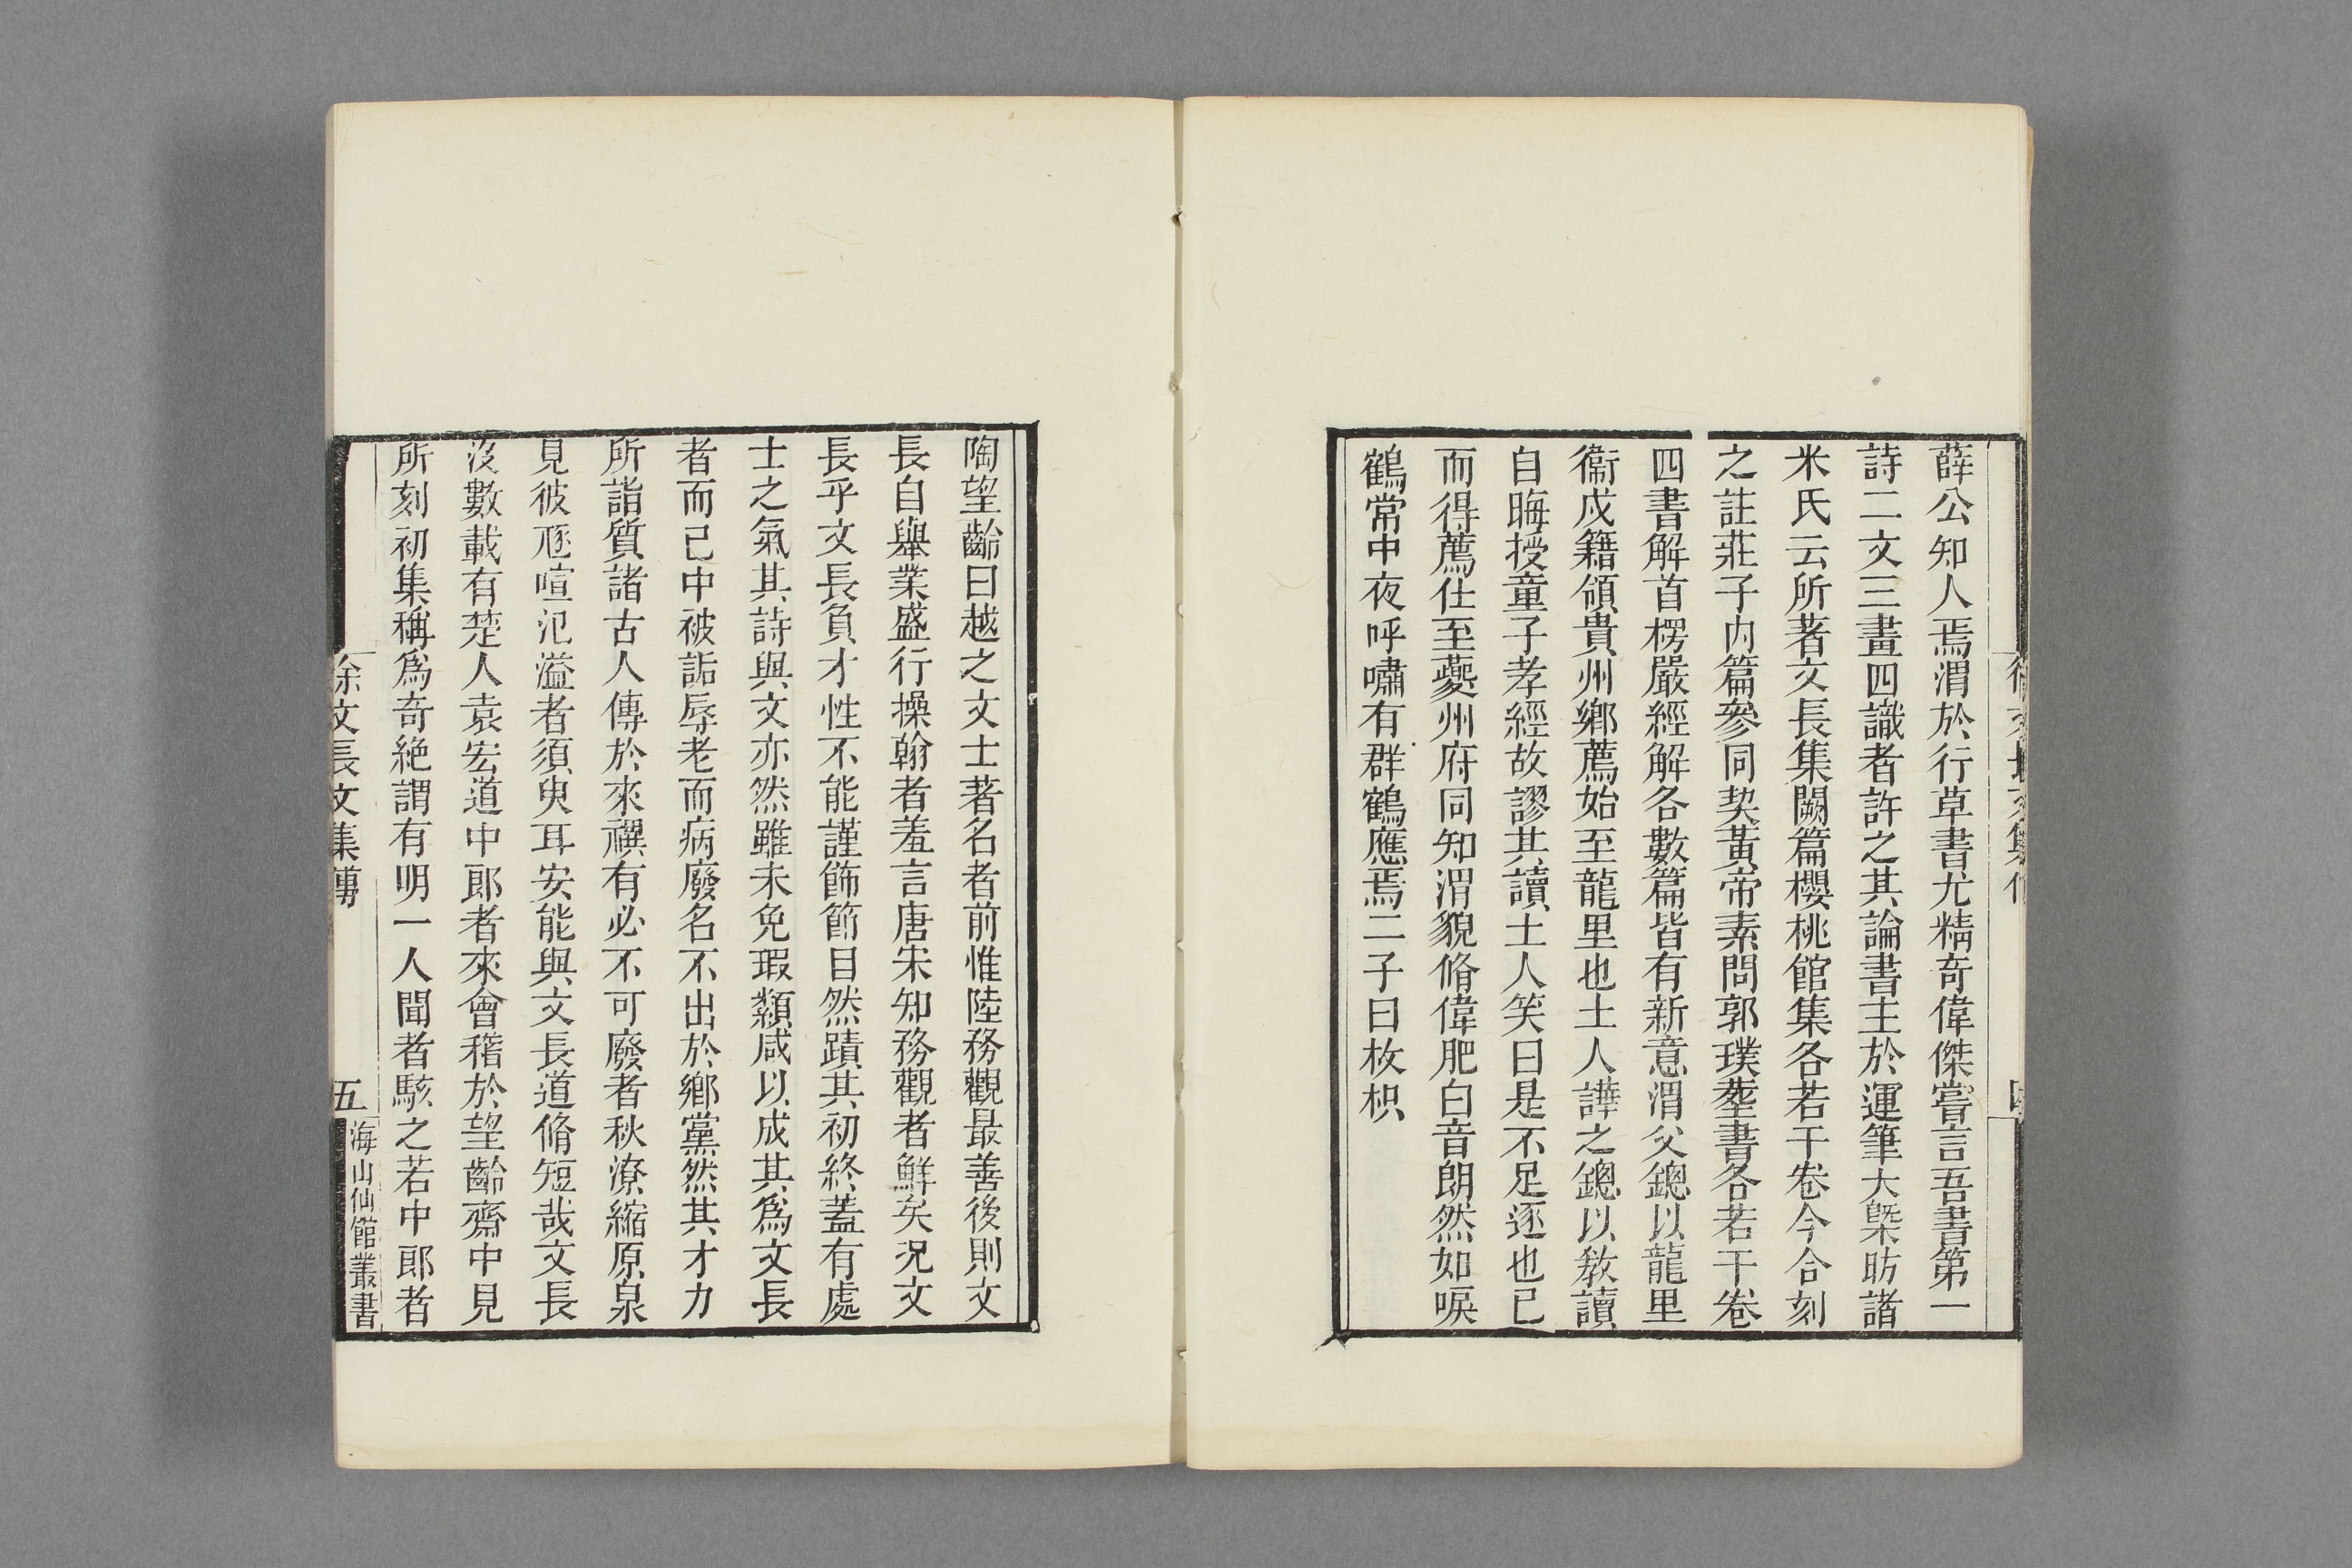 薛公知人焉渭於行草書尤精奇偉傑嘗言吾書第一
詩二文三畫四識者許之其論書主於運筆大槩昉諸
米氏云所著文長集闕篇櫻桃館集各若干卷今合刻
之註莊子内篇參同契黃帝素問郭璞塟書各若干卷
四書解首楞嚴經解各數篇皆有新意渭父鏓以龍里
衞戍籍領貴州鄉薦始至龍里也土人譁之鏓以教讀
自晦授童子孝經故謬其讀土人笑曰是不足逐也已
而得薦仕至夔州府同知渭貌脩偉肥白音朗然如唳
鶴常中夜呼嘯有群鶴應焉二子曰枚枳
陶望齡曰越之文士著名者前惟陸務觀最善後則文
長自舉業盛行操翰者羞言唐宋知務觀者鮮矣況文
長乎文長負才性不能謹飾節目然蹟其初終蓋有處
士之氣其詩與文亦然雖未免瑕纇咸以成其爲文長
者而已中被詬辱老而病廢名不出於鄉黨然其才力
所詣質諸古人傳於來禩有必不可廢者秋潦縮原泉
見彼豗喧氾溢者須臾耳安能與文長道脩短哉文長
沒數載有楚人袁宏道中郎者來會稽於望齡齋中見
所刻初集稱爲奇絶謂有明一人聞者駭之若中郎者
徐文長文集傳
五
海山仙館叢書